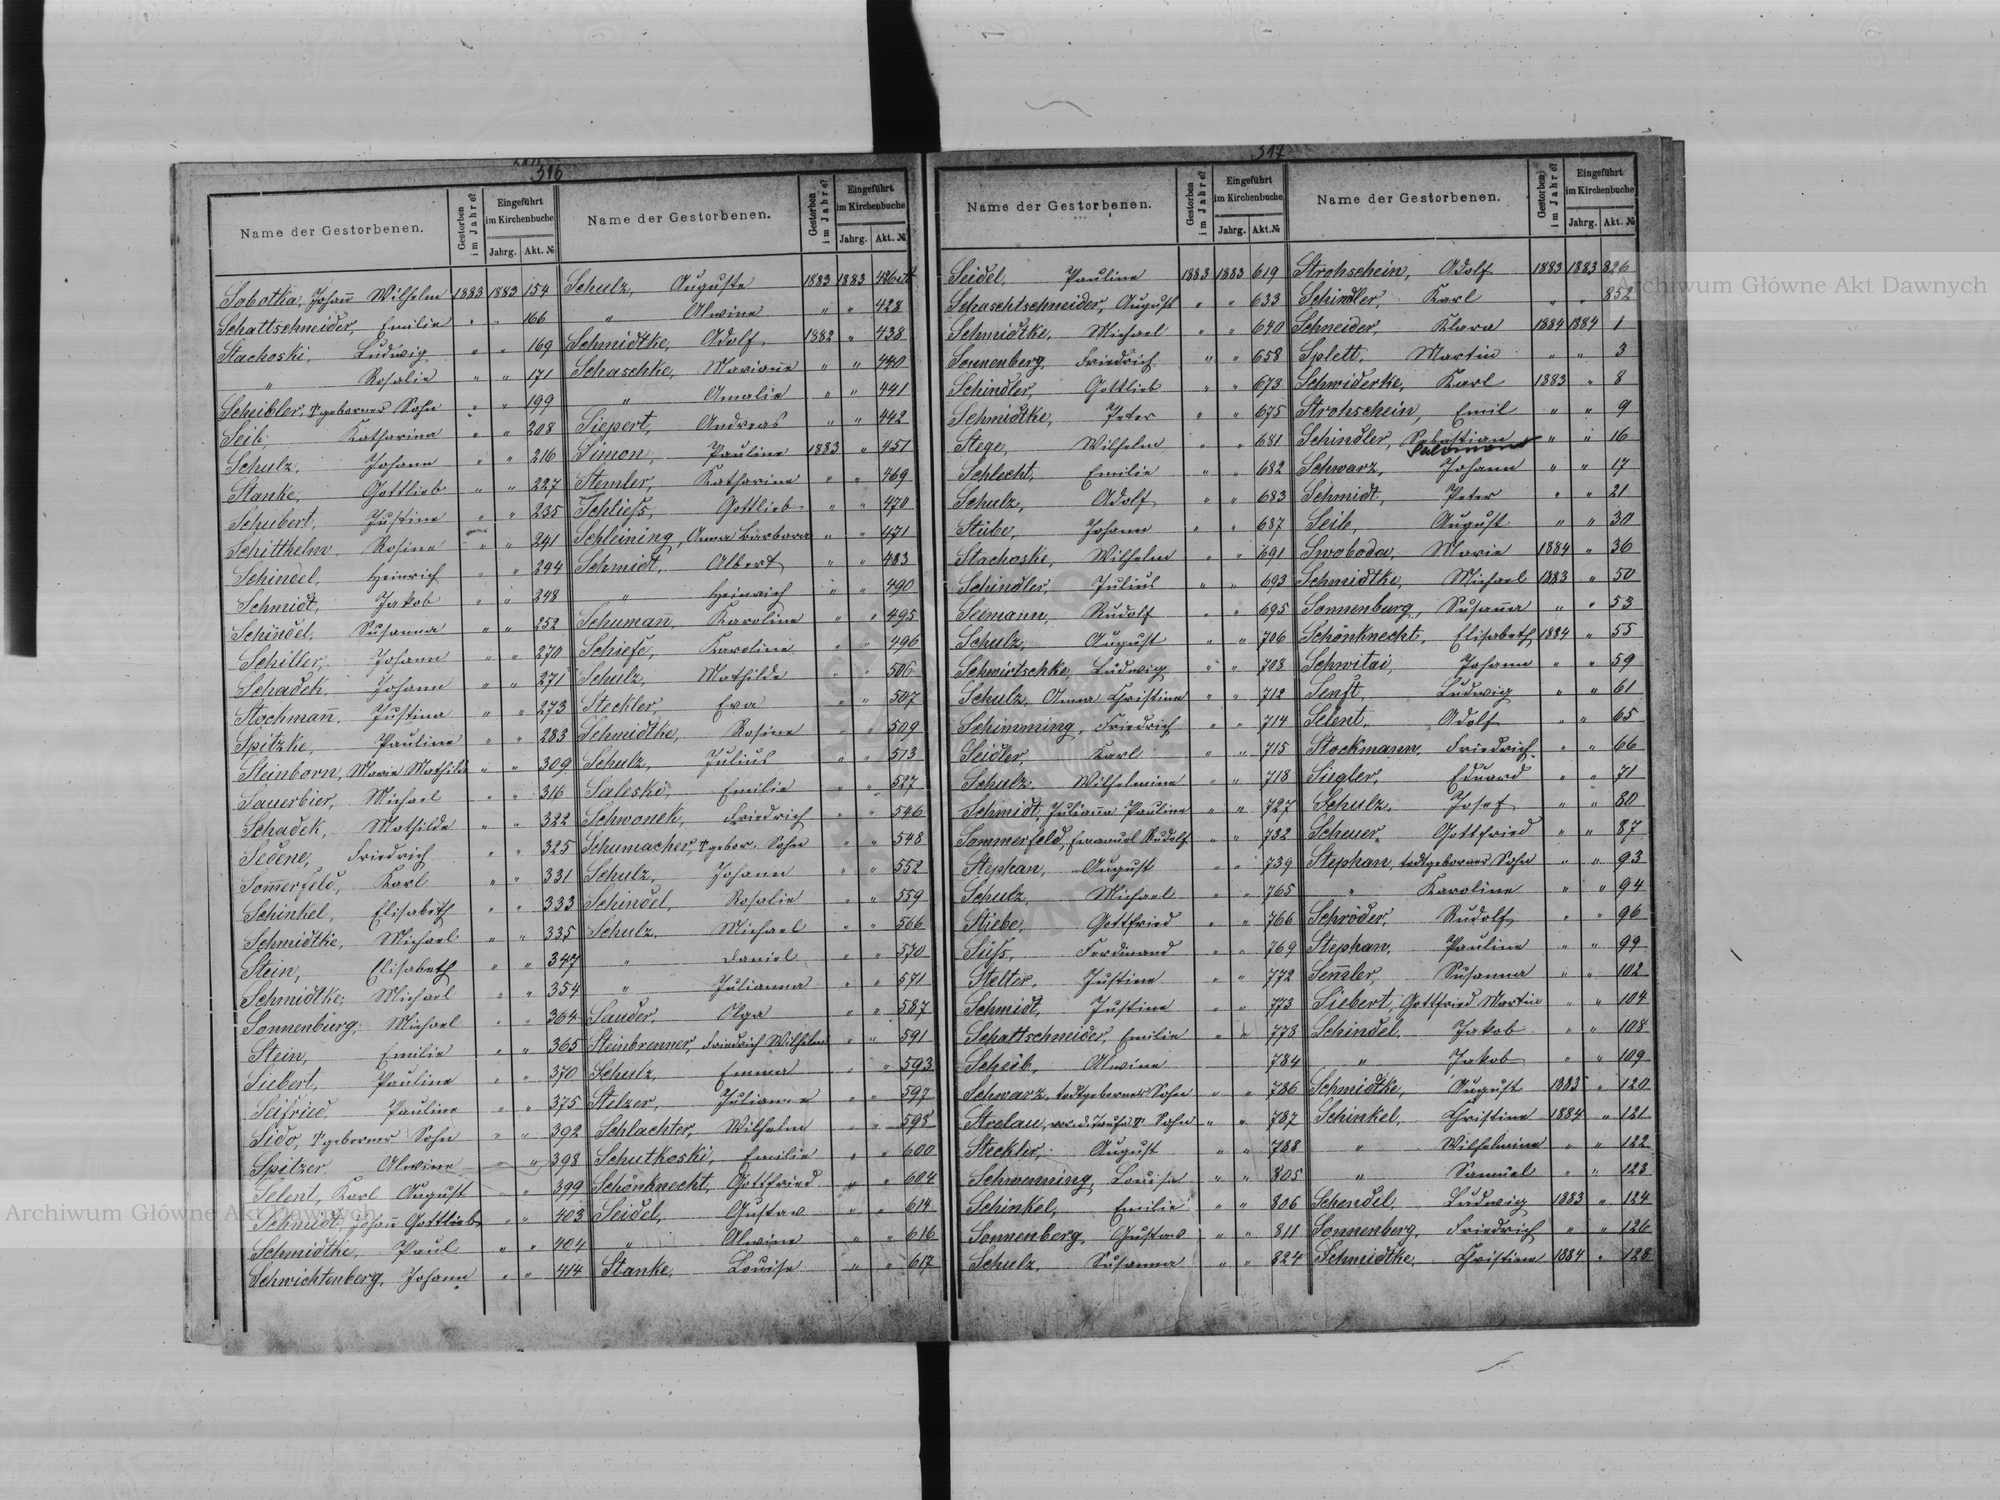 316
Name der Gestorbenen. Gestorben im Jahre? Eingeführt im Kirchenbuche Jahrg. Akt. №
Sobotka, Johañ Wilhelm 1883 1883 154
Schattschneider, Emilie " " 166
Stachoski, Ludwig " " 169
" Rosalie " " 171
Scheibler, geborner Sohn " " 199
Seib, Katharina " " 208
Schulz, Johann " " 216
Stanke, Gottlieb " " 227
Schubert, Justine " " 235
Schitthelm, Rosine " " 241
Schindel, Heinrich " " 244
Schmidt, Jakob " " 248
Schindel, Susanna " " 252
Schiller, Johann " " 270
Schadek, Johann " " 271
Stockmañ, Justina " " 273
Spitzke, Pauline " " 283
Steinborn, Marie Mathilde " " 309
Sauerbier, Michael " " 316
Schadek, Mathilde " " 322
Sedene, Friedrich " " 325
Somerfeld, Karl " " 331
Schinkel, Elisabeth " " 333
Schmidtke, Michael " " 335
Stein, Elisabeth " " 347
Schmidtke, Michael " " 354
Sonnenburg, Michael " " 364
Stein, Emilie " " 365
Siebert, Pauline " " 370
Seifried, Pauline " " 375
Sido, geborner Sohn " " 392
Spitzer, Alwine " " 398
Selent, Karl August " " 399
Schmidt, Johañ Gottlieb " " 403
Schmidtke, Paul " " 404
Schwichtenberg, Johann " " 414
Name der Gestorbenen. Gestorben im Jahre? Eingeführt im Kirchenbuche Jahrg. Akt. №
Schulz, Auguste 1883 1883 426
" Alwine " " 428
Schmidtke, Adolf 1882 " 438
Schaschke, Mariañe " " 440
" Amalie " " 441
Siepert, Andreas " " 442
Simon, Pauline 1883 " 451
Stemler, Katharine " " 469
Schliefs, Gottlieb " " 470
Schleining, Anna Barbara " " 471
Schmidt, Albert " " 483
" Heinrich " " 490
Schumañ, Karoline " " 495
Schiefe, Karoline " " 496
Schulz, Mathilde " " 506
Steckler, Eva " " 507
Schmidtke, Rosine " " 509
Schulz, Julius " " 513
Saleski, Emilie " " 527
Schwonek, Friedrich " " 546
Schumacher, gebor. Sohn " " 548
Schulz, Johann " " 552
Schindel, Rosalie " " 559
Schulz, Michael " " 566
" Daniel " " 570
" Julianna " " 571
Sauder, Olga " " 587
Steinbrenner, Friedrich Wilhelm " " 591
Schulz, Emma " " 593
Stelzer, Julianne " " 597
Schlachter, Wilhelm " " 598
Schutkoski, Emilie " " 600
Schönknecht, Gottfried " " 604
Seidel, Gustav " " 614
" Alwine " " 616
Stanke, Louise " " 617
317
Name der Gestorbenen. Gestorben im Jahre? Eingeführt im Kirchenbuche Jahrg. Akt. №
Seidel, Pauline 1883 1883 619
Schaschtschneider, August " " 633
Schmidtke, Michael " " 640
Sonnenberg, Friedrich " " 658
Schindler, Gottlieb " " 673
Schmidtke, Peter " " 675
Stege, Wilhelm " " 681
Schlecht, Emilie " " 682
Schulz, Adolf " " 683
Stübe, Johann " " 687
Stachoske, Wilhelm " " 691
Schindler, Julius " " 693
Seemann, Rudolf " " 695
Schulz, August " " 706
Schwirtschke, Ludwig " " 708
Schulz, Anna Christine " " 712
Schimming, Friedrich " " 714
Seidler, Karl " " 715
Schulz, Wilhelmine " " 718
Schmidt, Juliañe Pauline " " 727
Sommerfeld, Emanuel Rudolf " " 732
Stephan, August " " 739
Schulz, Michael " " 765
Stiebe, Gottfried " " 766
Süfs, Ferdinand " " 769
Stelter, Justine " " 772
Schmidt, Justine " " 773
Schattschneider, Emilie " " 778
Scheib, Alwine 784
Schwarz, todtgeborner Sohn " " 786
Strelau, vor d. Taufe Sohn " " 787
Steckler, August " " 788
Schwenning, Louise " " 805
Schinkel, Emilie " " 806
Sonnenberg, Gustav " " 811
Schulz, Susanna " " 824
Name der Gestorbenen. Gestorben im Jahre? Eingeführt im Kirchenbuche Jahrg. Akt. №
Strohschein, Adolf 1883 1883 826
Schindler, Karl " " 852
Schneider, Klara 1884 1884 1
Splett, Martin " " 3
Schwiderke, Karl 1883 " 8
Strohschein, Emil " " 9
Schindler, Sebastian " " 16
Schwarz, Johann " " 17
Schmidt, Peter " " 21
Seib, August " " 30
Swoboda, Marie 1884 " 36
Schmidtke, Michael 1883 " 50
Sonnenburg, Susaña " " 53
Schönknecht, Elisabeth 1884 " 55
Schwitai, Johann " " 59
Senft, Ludwig " " 61
Selent, Adolf " " 65
Stockmann, Friedrich " " 66
Siegler, Eduard " " 71
Schulz, Josef " " 80
Scheuer, Gottfried " " 87
Stephan, todtgeborner Sohn " " 93
" Karoline " " 94
Schröder, Rudolf " " 96
Stephan, Pauline " " 99
Semler, Susanna " " 102
Siebert, Gottfried Martin " " 104
Schindel, Jakob " " 108
" Jakob " " 109
Schmidtke, August 1883 " 120
Schinkel, Christine 1884 " 121
" Wilhelmine " " 122
" Samuel " " 123
Schendel, Ludwig 1883 " 124
Sonnenberg, Friedrich " " 126
Schmidtke, Christine 1884 " 128
Archiwum Główne Akt Dawnych
Archiwum Główne Akt Dawnych